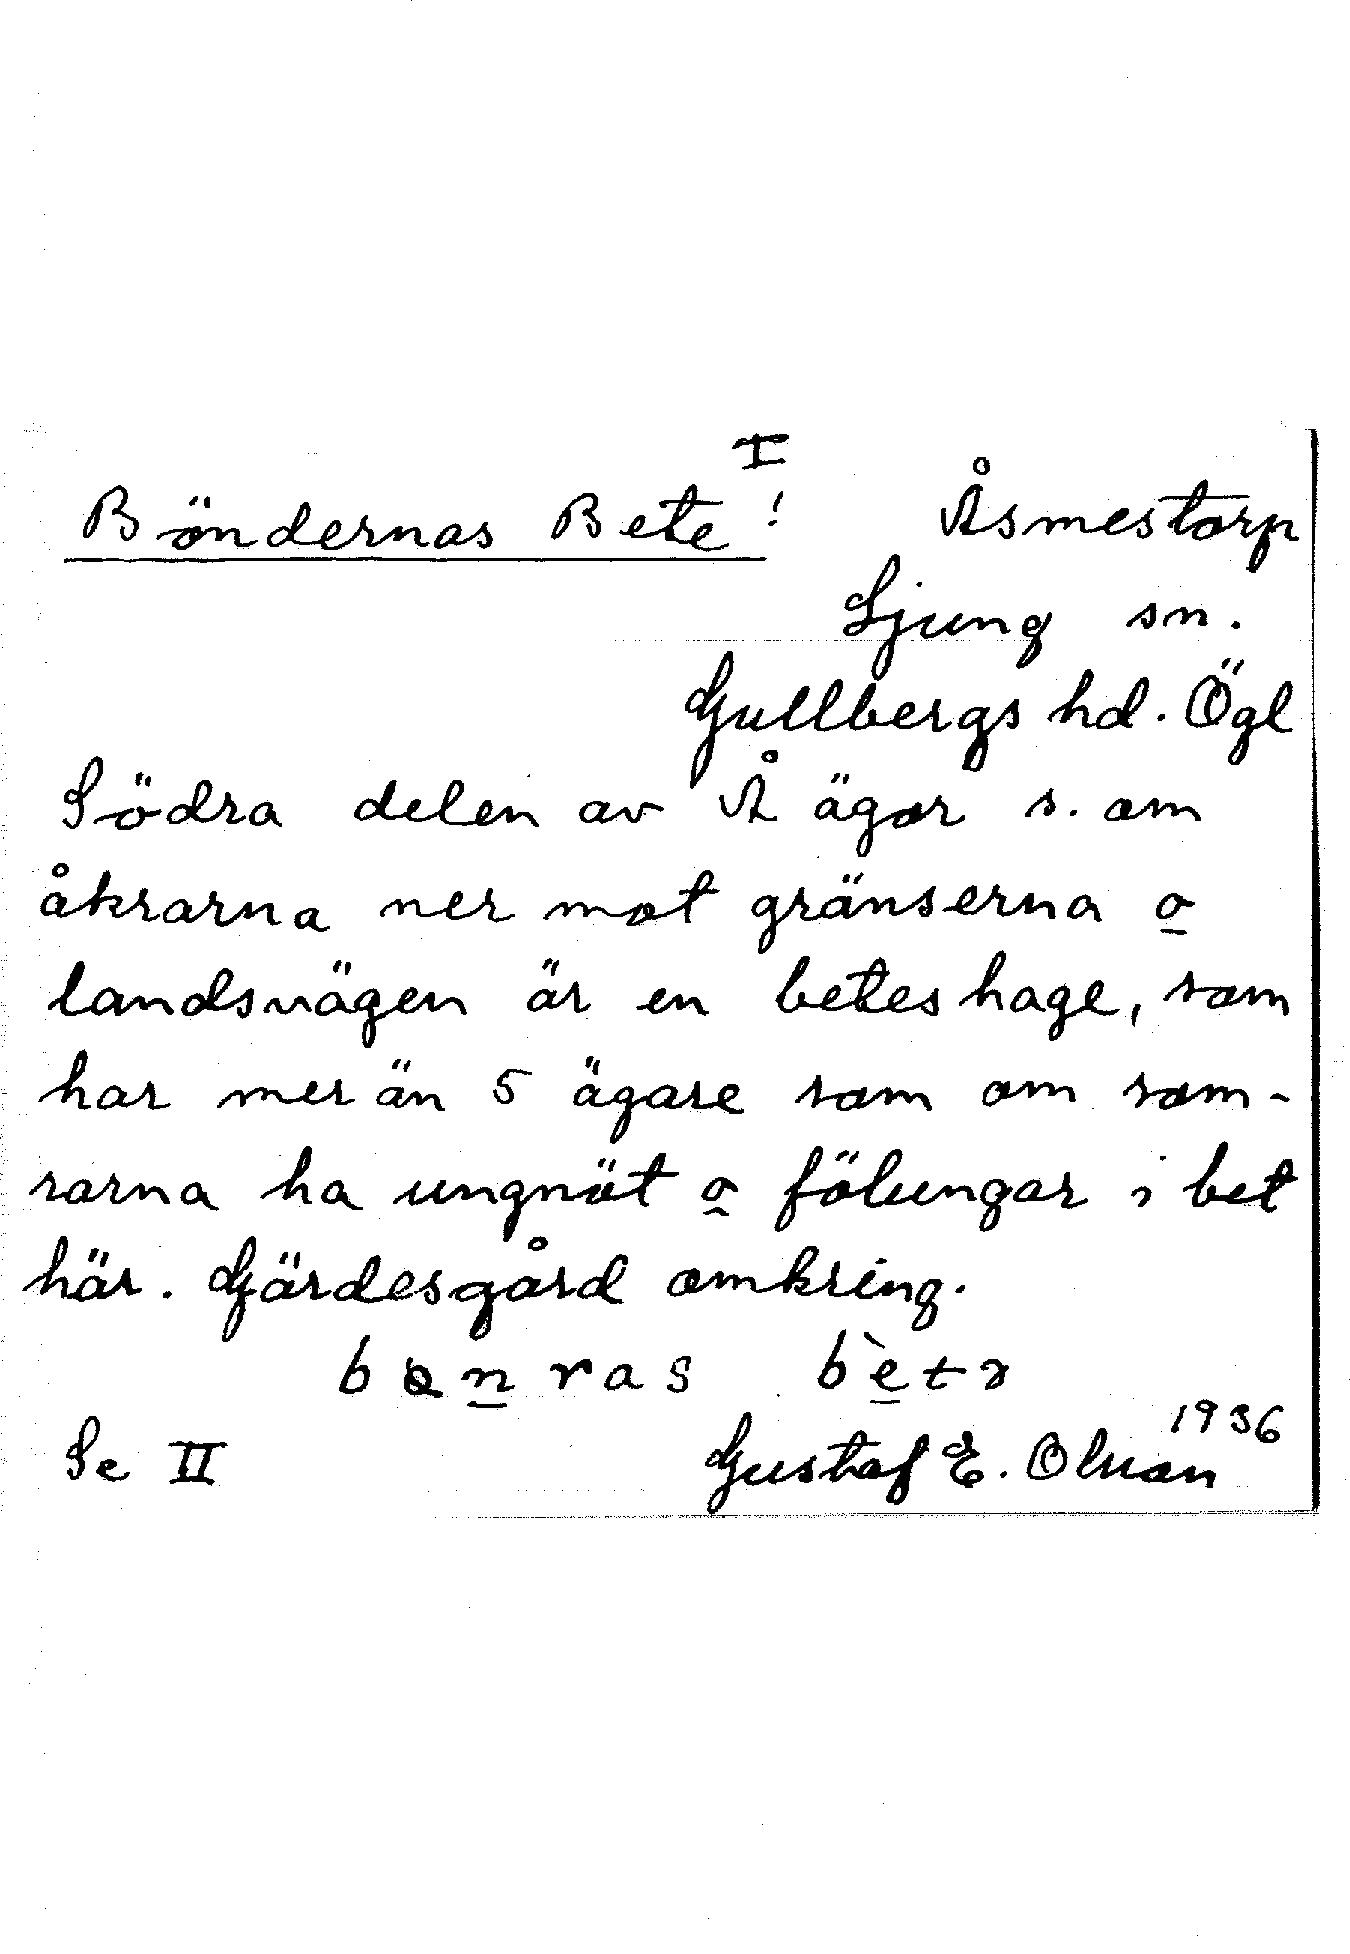 I
Böndernas Bete! Åsmestorp
Ljung sn.
Gullbergs hd. Ögl
Södra delen av Å ägor s. om
åkrarna ner mot gränserna o
landsvägen är en beteshage, som
har mer än 5 ägare som om som-
rarna ha ungnöt o fölungar i bet
här. Gärdesgård omkring.
ras
Se II Gustaf E. Olson 1936